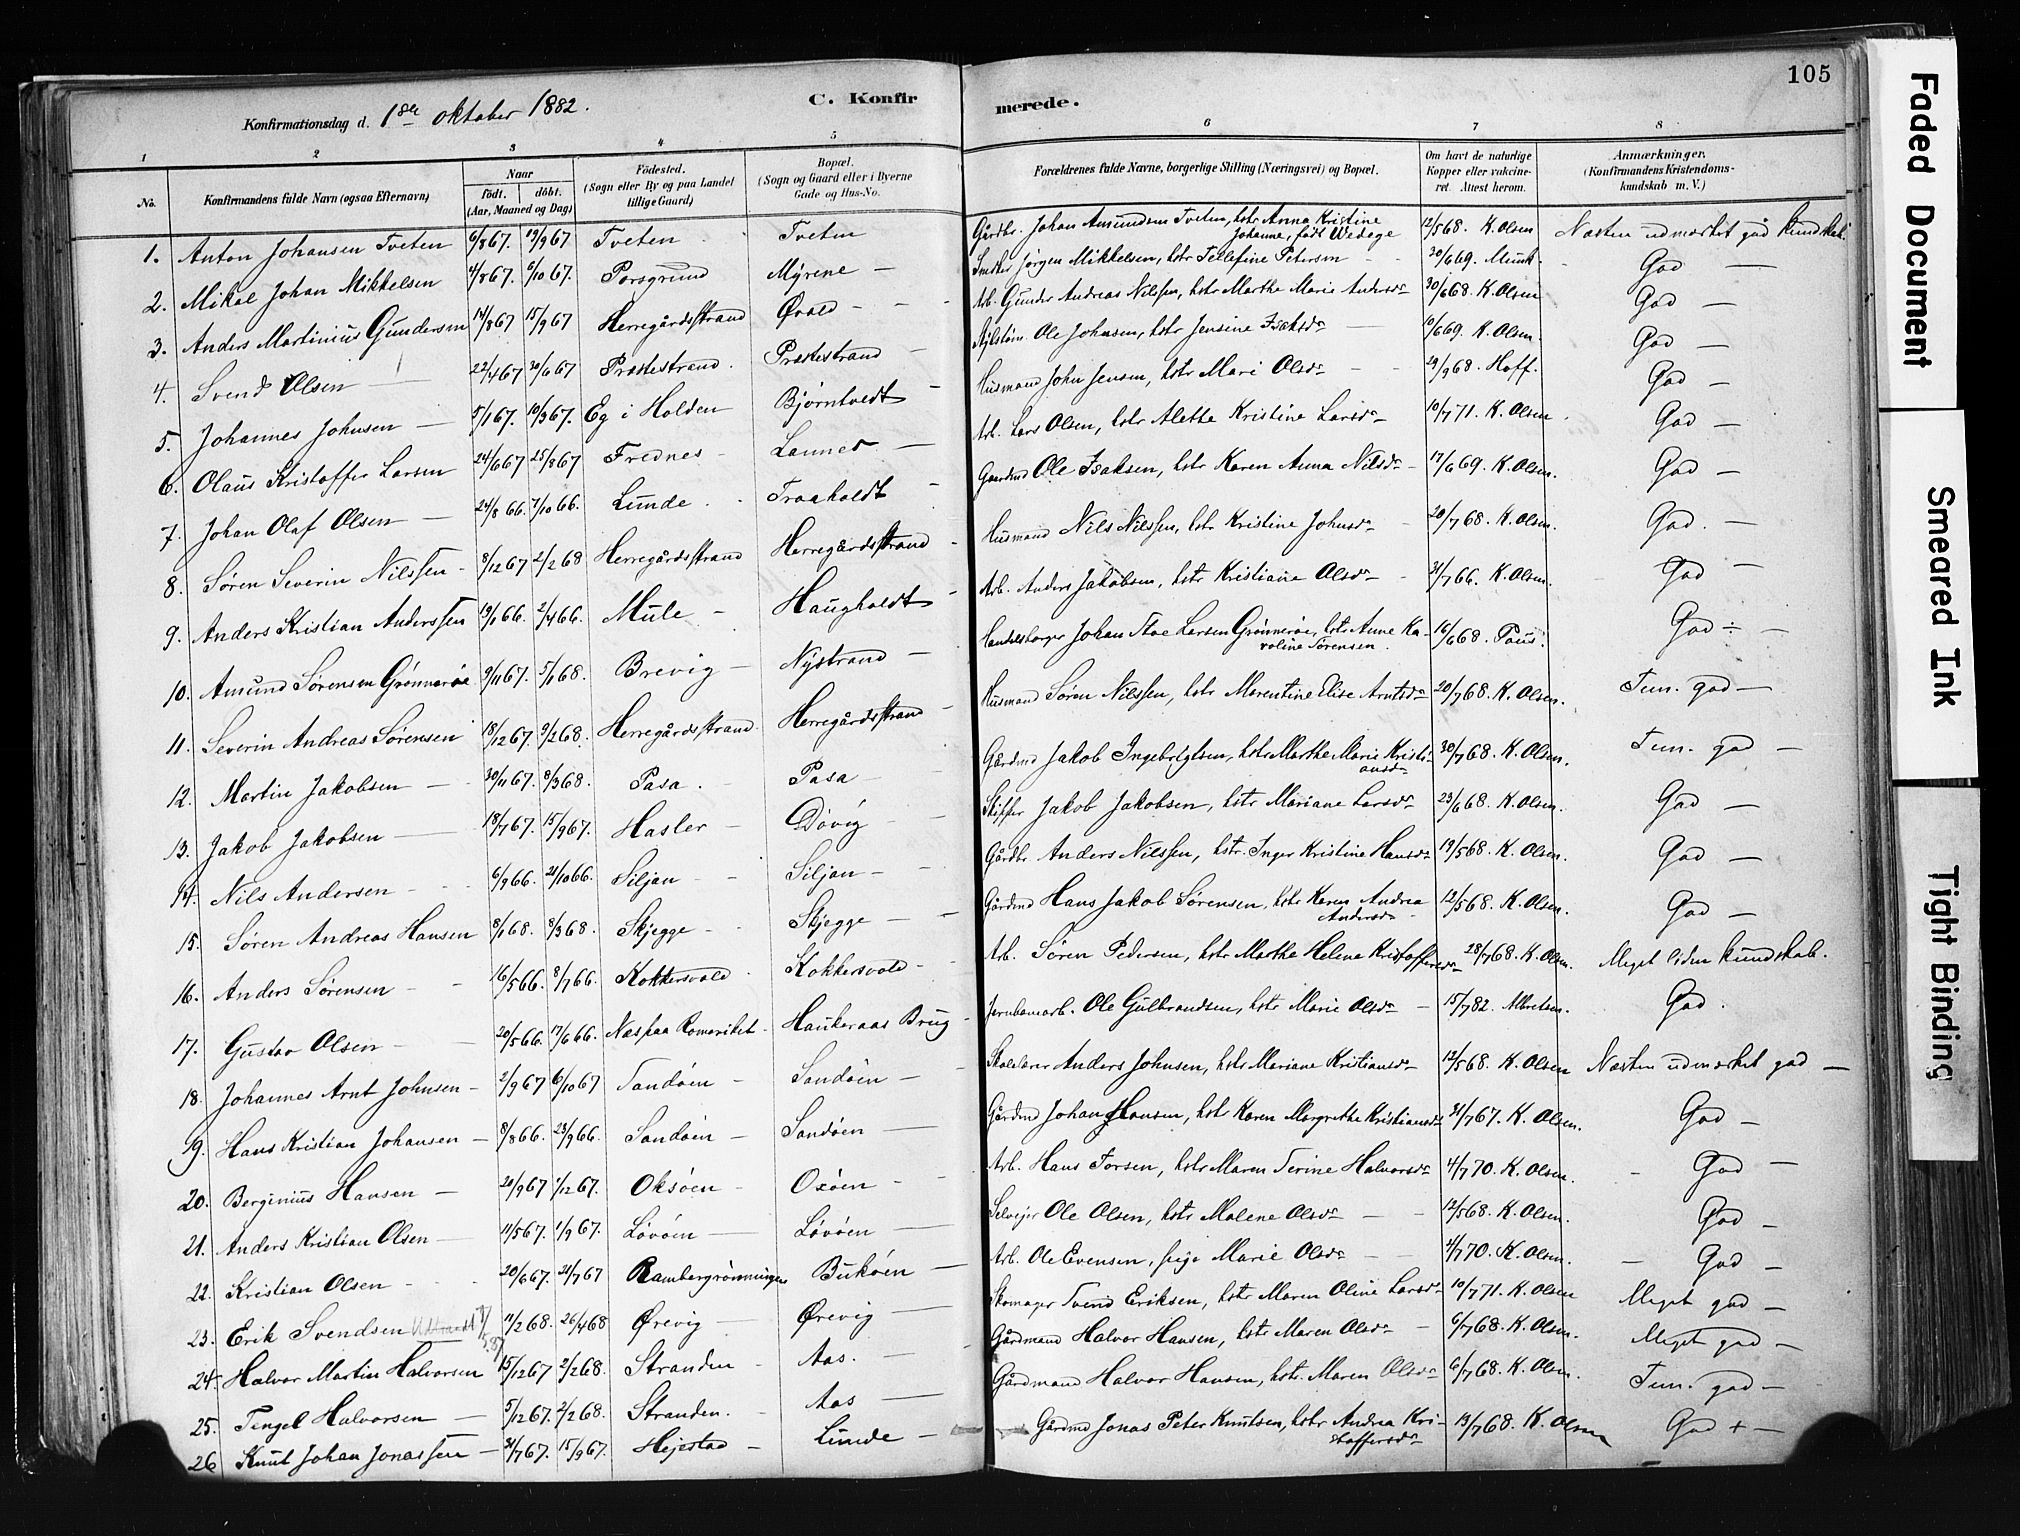 105
C. Konfirmerede.
Konfirmationsdag d. 1ste oktober 1882.
1 2 3 4 5 6 7 8
No. Konfirmandens fulde Navn (ogsaa Efternavn) Naar født. døbt. (Aar, Maaned og Dag) Fødested. (Sogn eller By og paa Landet tillige Gaard) Bopæl. (Sogn og Gaard eller i Byerne Gade og Hus-No. Forældrenes fulde Navne, borgerlige Stilling (Næringsvei) og Bopæl. Om havt de naturlige Kopper eller vakcineret. Attest herom. Anmærkninger. (Konfirmandens Kristendomskundskab m. V.)
1. Anton Johansen Tveten 6/8 67. 19/9 67 Tveten Tveten Gårdbr. Johan Amundsen Tveten, hstr Anna Kristine Johanne, født Wedege 12/5 68. K. Olsen Næsten udmærket god kundskab.
2. Mikal Johan Mikkelsen 4/8 67. 6/10 67. Porsgrund Myrene — Jørgen Mikkelsen, hstr Tellefine Petersen 20/6 69. Munk. God —
3. Anders Martinius Gundersen 14/8 67 15/9 67 Herregårdsstrand Ørold — Arb. Gunder Andreas Nilssen, hstr Marthe Marie Andersdr 30/6 68. K. Olsen God —
4. Svend Olsen — 22/4 67 30/6 67 Præstestrand. Præstestrand — Ole Johnsen, hstr Jensine Isaksdr — 10/6 69. K. Olsen. God —
5. Johannes Johnsen — 5/1 67. 10/3 67. Eg i Holden Bjørntvedt — Husmand John Jensen, hstr Mari Olsdr — 29/9 68. Hoff. God —
6. Olaus Kristoffer Larsen 24/6 67 25/8 67 Frednes — Lannes — Arb. Lars Olsen, hstr Alette Kristine Larsdr 10/7 71. K. Olsen God —
7. Johan Olaf Olsen — 24/8 66. 7/10 66. Lunde. Traaholdt — Gaardmd Ole Isaksen, hstr Karen Anna Nilsdr — 17/6 69. K. Olsen. God —
8. Søren Severin Nilssen — 8/12 67 2/2 68 Herregårdsstrand Herregårdsstrand — Husmand Nils Nilssen, hstr Kristine Johnsdr — 20/7 68. K. Olsen. God. —
9. Anders Kristian Anderssen 19/1 66. 2/4 66. Mule — Haugholdt — Arb. Anders Jakobsen, hstr Kristiane Olsdr — 31/7 66. K. Olsen. God —
10. Amund Sørensen Grønnerøe 9/11 67. 5/1 68. Brevig — Nystrand — Handelsborger Johan Stoe Larsen Grønnerøe, hstr Anne Karoline Sørensen. 16/6 68. Paus. God ÷ —
11. Severin Andreas Sørensen 18/12 67. 9/2 68. Herregårdsstrand. Herregårdsstrand — Husmand Søren Nilssen, hstr Marentine Elise Arntsdr 20/7 68. K. Olsen. Tem. god —
12. Martin Jakobsen — 30/11 67. 8/3 68. Pasa. Pasa — Gårdmd Jakob Ingebrigtsen, hstr Marthe Marie Kristiansdr 30/7 68. K. Olsen. Tem. god —
13. Jakob Jakobsen — 18/7 67. 15/9 67. Hasler — Døvig — Skipper Jakob Jakobsen, hstr Mariane Larsdr 23/6 68. K. Olsen. God —
14. Nils Andersen — 6/9 66. 21/10 66. Siljan — Siljan — Gårdbr. Anders Nilssen, hstr. Inger Kristine Hansdr 19/5 68. K. Olsen. God —
15. Søren Andreas Hansen 8/1 68. 8/3 68. Skjegge — Skjegge — Gårdmd Hans Jakob Sørensen, hstr Karen Andrea Andersdr 12/5 68. K. Olsen. God —
16. Anders Sørensen — 16/5 66. 8/7 66. Kokkersvold Kokkersvold — Arb. Søren Pedersen, hstr Marthe Helene Kristoffersdr 28/7 68. K. Olsen. Meget liden kundskab.
17. Gustav Olsen — 20/5 66. 17/6 66. Næs paa Romeriket — Haukeraas Brug — Jernbanearb. Ole Gulbrandsen, hstr Marie Olsdr — 15/7 82. God.
18. Johannes Arnt Johnsen — 2/9 67 6/10 67 Sandøen — Sandøen — Skolelærer Anders Johnsen, hstr Mariane Kristiansdr 12/5 68. K. Olsen Næsten udmærket god —
19. Hans Kristian Johansen — 8/8 66. 23/9 66. Sandøen — Sandøen — Gårdmd Johan Hansen, hstr Karen Margrethe Kristiansdr 31/7 67. K. Olsen. God —
20. Berginius Hansen — 20/9 67 1/12 67. Oksøen — Oxøen — Arb. Hans Torsen, hstr Maren Terine Halvorsdr 4/7 70. K. Olsen. God —
21. Anders Kristian Olsen — 11/5 67. 1/9 67. Løvøen — Løvøen — Selveier Ole Olsen, hstr Malene Olsdr — 12/5 68. K. Olsen. God —
22. Kristian Olsen — 20/6 67. 21/7 67 Rambergrønningen Bukøen — Arb. Ole Evensen, pige Marie Olsdr — 4/7 70. K. Olsen. — God —
23. Erik Svendsen 11/2 68. 26/4 68 Ørevig — Ørevig — Skomager Svend Eriksen, hstr Maren Oline Larsdr 10/7 71. K. Olsen Meget god —
24. Halvor Martin Halvorsen 15/12 67 2/2 68. Stranden — Aas. — Gårdmand Halvor Hansen, hstr Maren Olsdr — 6/7 68. K. Olsen. Meget god —
25. Tengel Halvorsen — 5/12 67. 2/2 68. Stranden. Aas — Gårdmand Halvor Hansen, hstr. Maren Olsdr — 6/7 68. K. Olsen. Tem. god —
26 Knut Johan Jonassen — 31/7 67. 15/9 67. Hejestad — Lunde — Gårdmd Jonas Peter Knutsen, hstr Andrea Kristoffersdr 13/7 68. K. Olsen God + —
Faded Document
Smeared Ink
Tight Binding